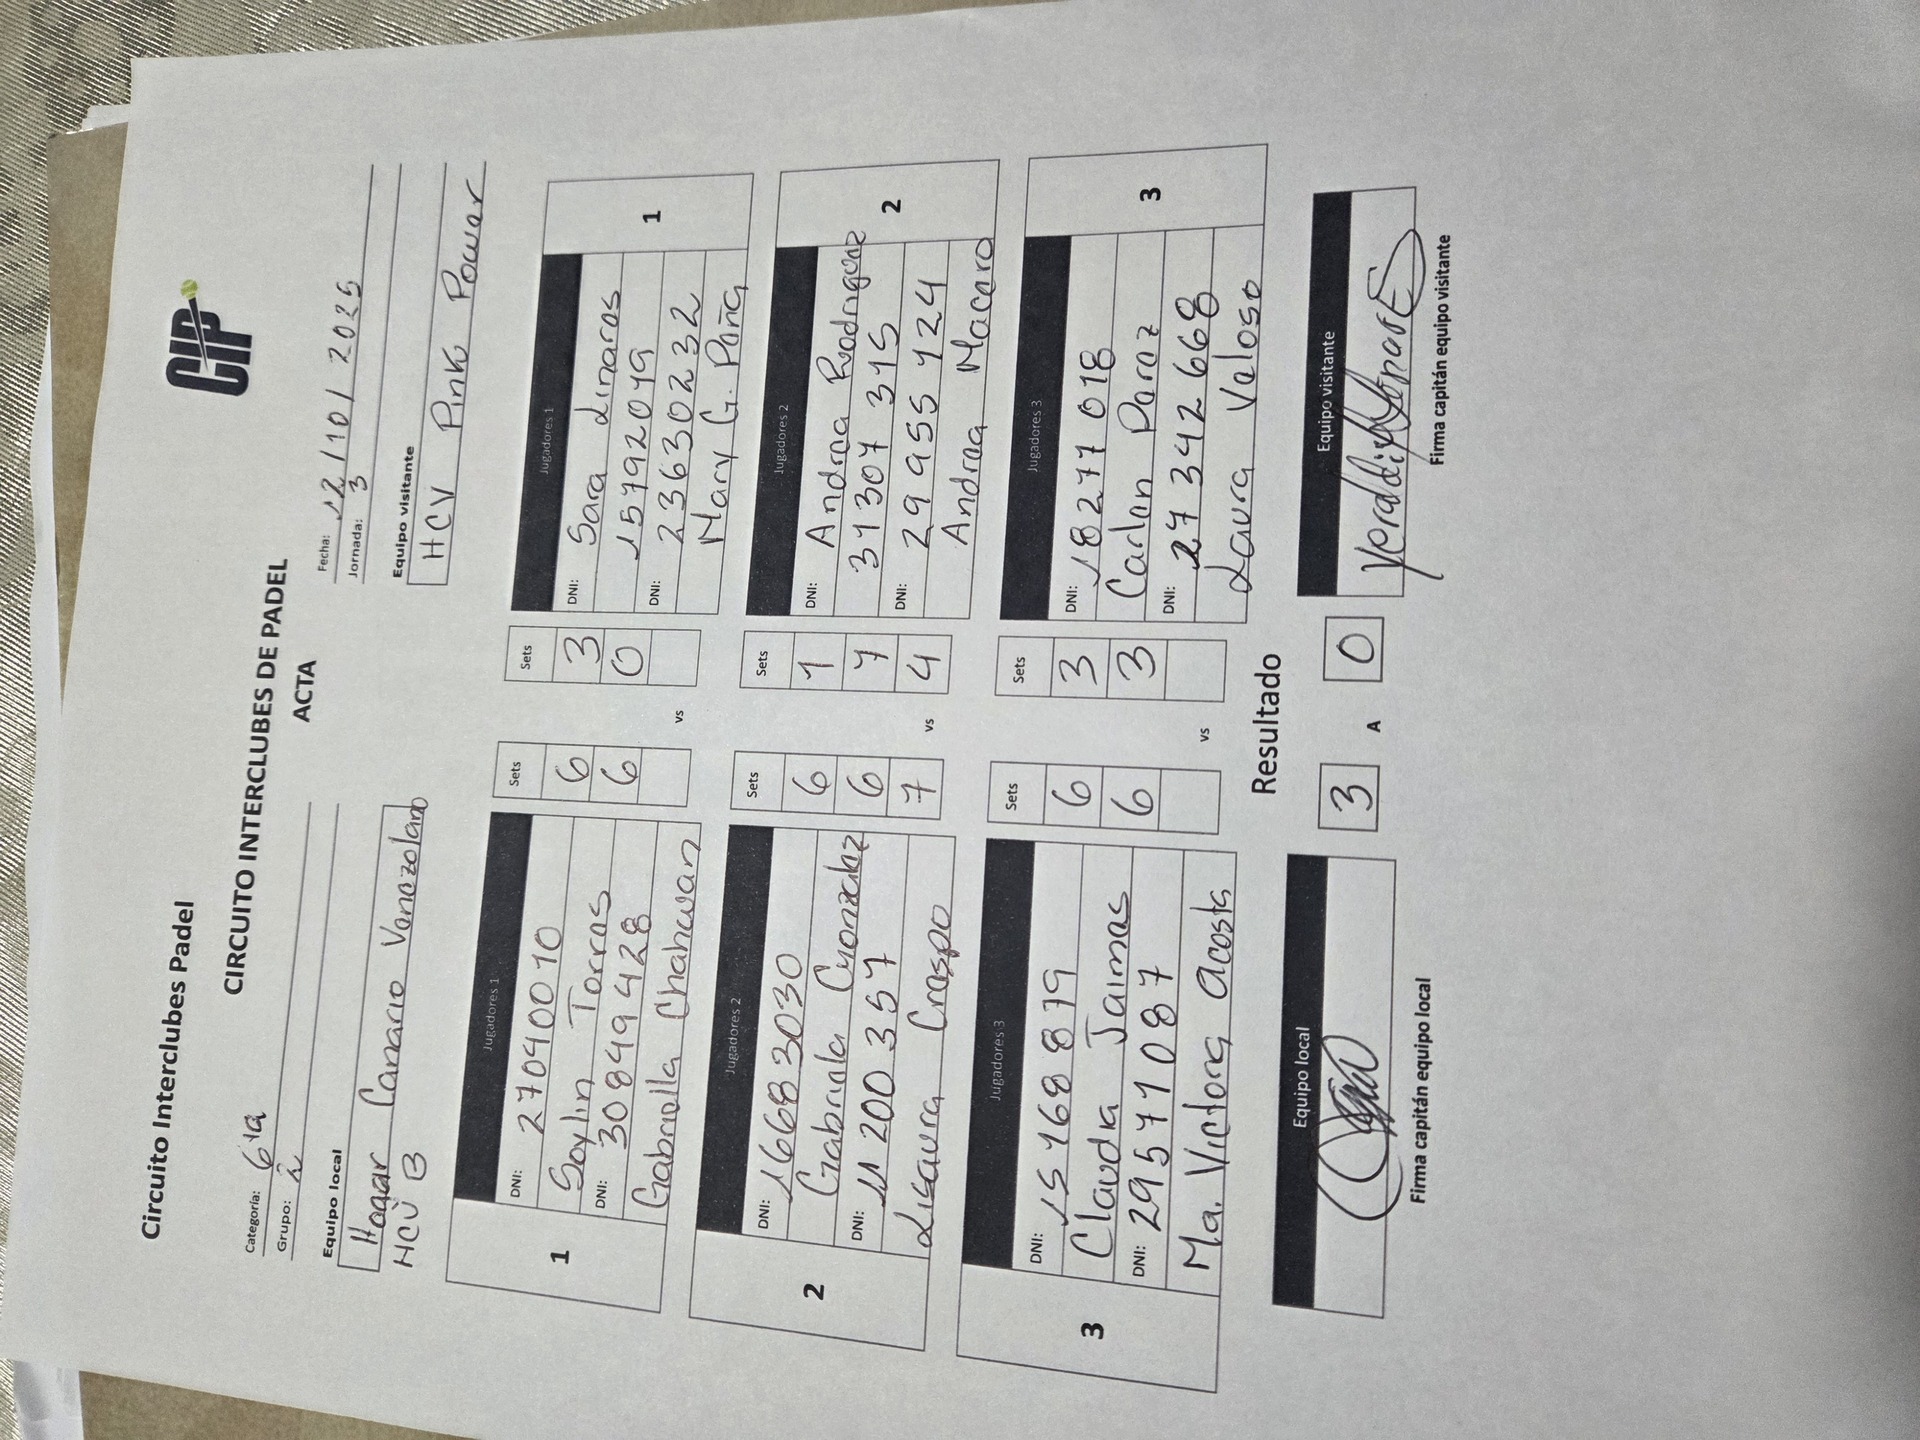 Circuito Interclubes Padel
CIP
CIRCUITO INTERCLUBES DE PADEL
ACTA
Categoría: 6ta
Grupo: 2
Fecha: 12/10/2025
Jornada: 3
Equipo local
Hogar Canario Venezolano
HCV B
Equipo visitante
HCV Pink Power
1
Jugadores 1
DNI: 27040010
Saylin Torres
DNI: 30849428
Gabriella Chahwan
Sets
6
6
vs
Sets
3
0
Jugadores 1
DNI: Sara Linares
15792049
DNI: 23630232
Mary G. Peña
1
2
Jugadores 2
DNI: 16683030
Gabriela Gonzalez
DNI: 11200357
Lisaura Crespo
Sets
6
6
7
vs
Sets
1
7
4
Jugadores 2
DNI: Andrea Rodriguez
31307315
DNI: 29955124
Andrea Macero
2
3
Jugadores 3
DNI: 15468879
Claudia Jaimes
DNI: 29571087
Ma. Victoria Acosta
Sets
6
6
vs
Sets
3
3
Jugadores 3
DNI: 18277018
Carlen Perez
DNI: 27342668
Laura Veloso
3
Resultado
Equipo local
3 A 0
Equipo visitante
Firma capitán equipo local
Firma capitán equipo visitante